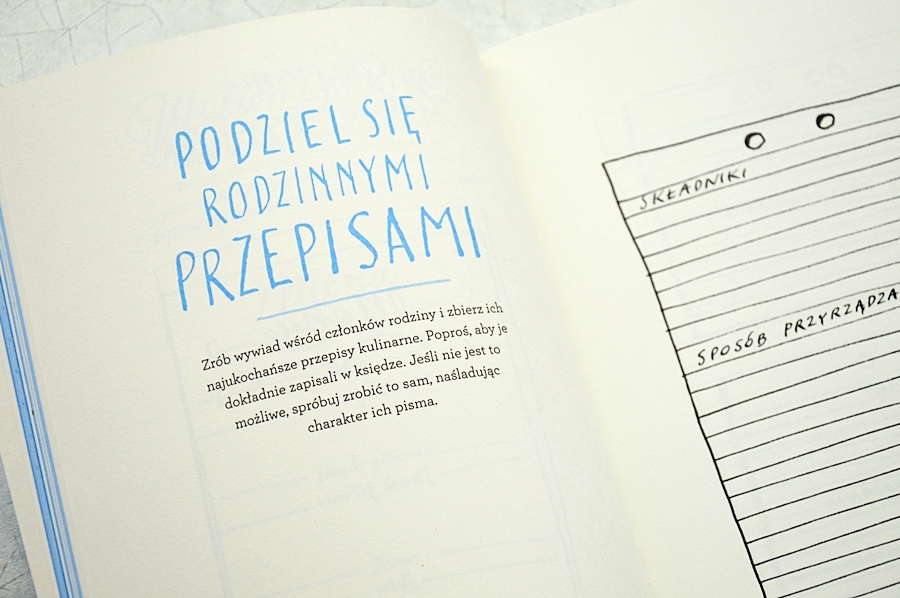 PODZIEL SIĘ
RODZINNYMI
PRZEPISAMI
Zrób wywiad wśród członków rodziny i zbierz ich
najukochańsze przepisy kulinarne. Poproś, aby je
dokładnie zapisali w księdze. Jeśli nie jest to
możliwe, spróbuj zrobić to sam, naśladując
charakter ich pisma.
SKŁADNIKI
SPOSÓB PRZYRZĄDZA